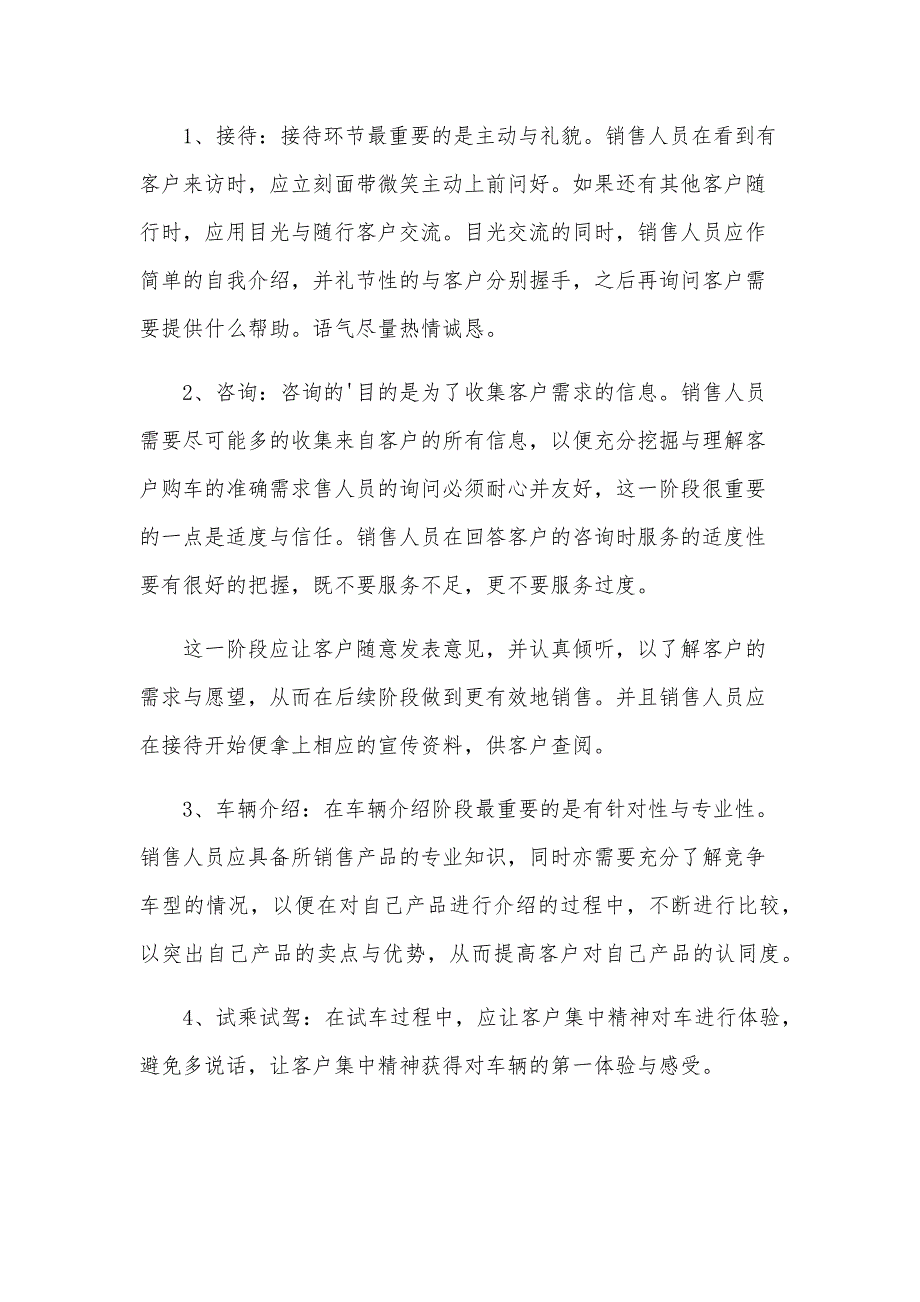 1、接待：接待环节最重要的是主动与礼貌。销售人员在看到有
客户来访时，应立刻面带微笑主动上前问好。如果还有其他客户随
行时，应用目光与随行客户交流。目光交流的同时，销售人员应作
简单的自我介绍，并礼节性的与客户分别握手，之后再询问客户需
要提供什么帮助。语气尽量热情诚恳。
2、咨询：咨询的'目的是为了收集客户需求的信息。销售人员
需要尽可能多的收集来自客户的所有信息，以便充分挖掘与理解客
户购车的准确需求售人员的询问必须耐心并友好，这一阶段很重要
的一点是适度与信任。销售人员在回答客户的咨询时服务的适度性
要有很好的把握，既不要服务不足，更不要服务过度。
这一阶段应让客户随意发表意见，并认真倾听，以了解客户的
需求与愿望，从而在后续阶段做到更有效地销售。并且销售人员应
在接待开始便拿上相应的宣传资料，供客户查阅。
3、车辆介绍：在车辆介绍阶段最重要的是有针对性与专业性。
销售人员应具备所销售产品的专业知识，同时亦需要充分了解竞争
车型的情况，以便在对自己产品进行介绍的过程中，不断进行比较，
以突出自己产品的卖点与优势，从而提高客户对自己产品的认同度。
4、试乘试驾：在试车过程中，应让客户集中精神对车进行体验，
避免多说话，让客户集中精神获得对车辆的第一体验与感受。